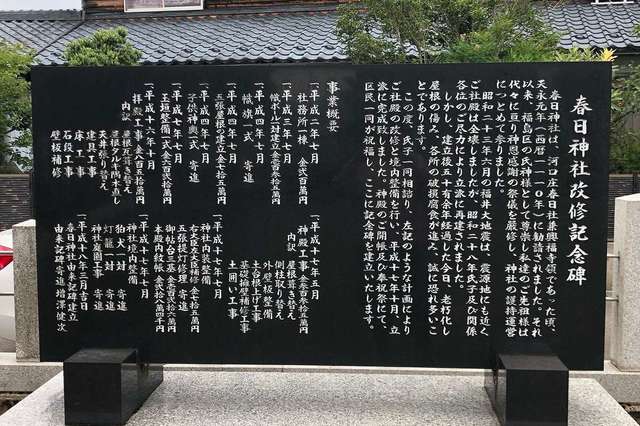 春日神社改修記念碑
春日神社は、河口庄春日社兼興福寺領であった頃、
天永元年（西暦一一一〇年）に勧請されました。それ
以来、福島区の氏神様として尊崇し私達のご先祖様は
代々に亘り神恩感謝の祭儀を厳修し、神社の護持運営
につとめて参りました。
昭和二十三年六月の福井大地震は、震源地にも近く
ご社殿は全壊しましたが、昭和二十八年氏子及び関係
各位のご尽力により立派に再建されました。
しかし、建立後五十有余年経過した今日、老朽化し
屋根の傷み、各所の破損腐食が進み、誠に恐れ多いこ
とであります。
この度、氏子一同相諮り、左記のような計画により
ご社殿の改修と境内整備を行い、平成十七年十月、立
派に完成致しました。神殿のご開帳及び奉祝祭にて、
区民一同が祝福し、ここに記念碑を建立いたします。
事業概要
一、平成二年七月
社務所一棟 金弐百万円
一、平成三年七月
幟ポール三対建立金壱百参拾五万円
一、平成四年七月
幟旗一式 寄進
一、平成四年七月
子供神輿一式 寄進
一、平成四年七月
五張屋根の建立金七十五万円
一、平成十六年七月
玉垣整備一式金弐百拾五万円
一、平成十六年十月
拝殿工事
内訳
屋根瓦葺き替え
屋根アルミ隅木直し
天井張り替え
建具工事
床工事
石段工事
壁板補修
一、平成十七年五月
神殿工事
内訳
屋根葺き替え
側柱取り替え
外壁板整備
土台根上げ工事
基礎擁壁補修工事
土囲い工事
一、平成十七年七月
神社内装整備
右大臣左大臣補修
五張提灯修理
御帖台三基
本殿内敷帳
一、平成十七年十月
神社境内整備
神社造園工事
灯籠一対 寄進
狛犬一対 寄進
平成十八年三月吉日
春日神社由来記碑建立
由来記碑寄進